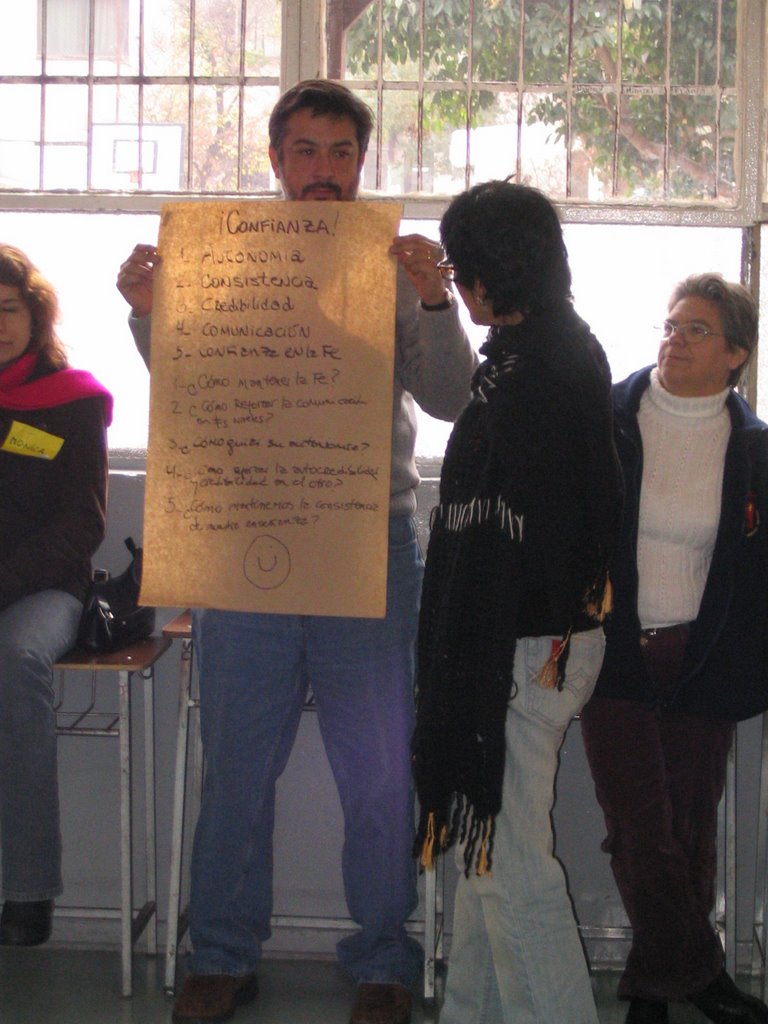 ¡CONFIANZA!
1- AUTONOMIA
2- CONSISTENCIA
3 CREDIBILIDAD
4- COMUNICACIÓN
5- CONFIANZA EN LA FE
1- ¿Cómo mantener la Fe?
2 ¿Cómo Reforzar la comunicación
en tres niveles?
3- ¿Cómo guiar su autonomia?
4- ¿Cómo la autocredibilidad
y credibilidad en el otro?
5- ¿Cómo mantenemos la consistencia
de nuestra enseñanza?
MONICA